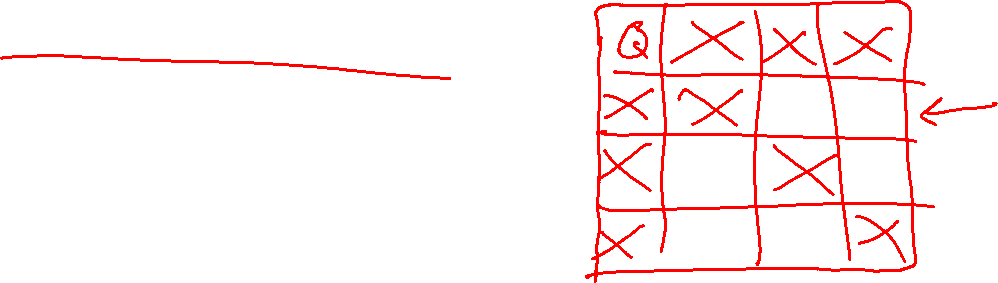 Q X X X
X X
X X
X X